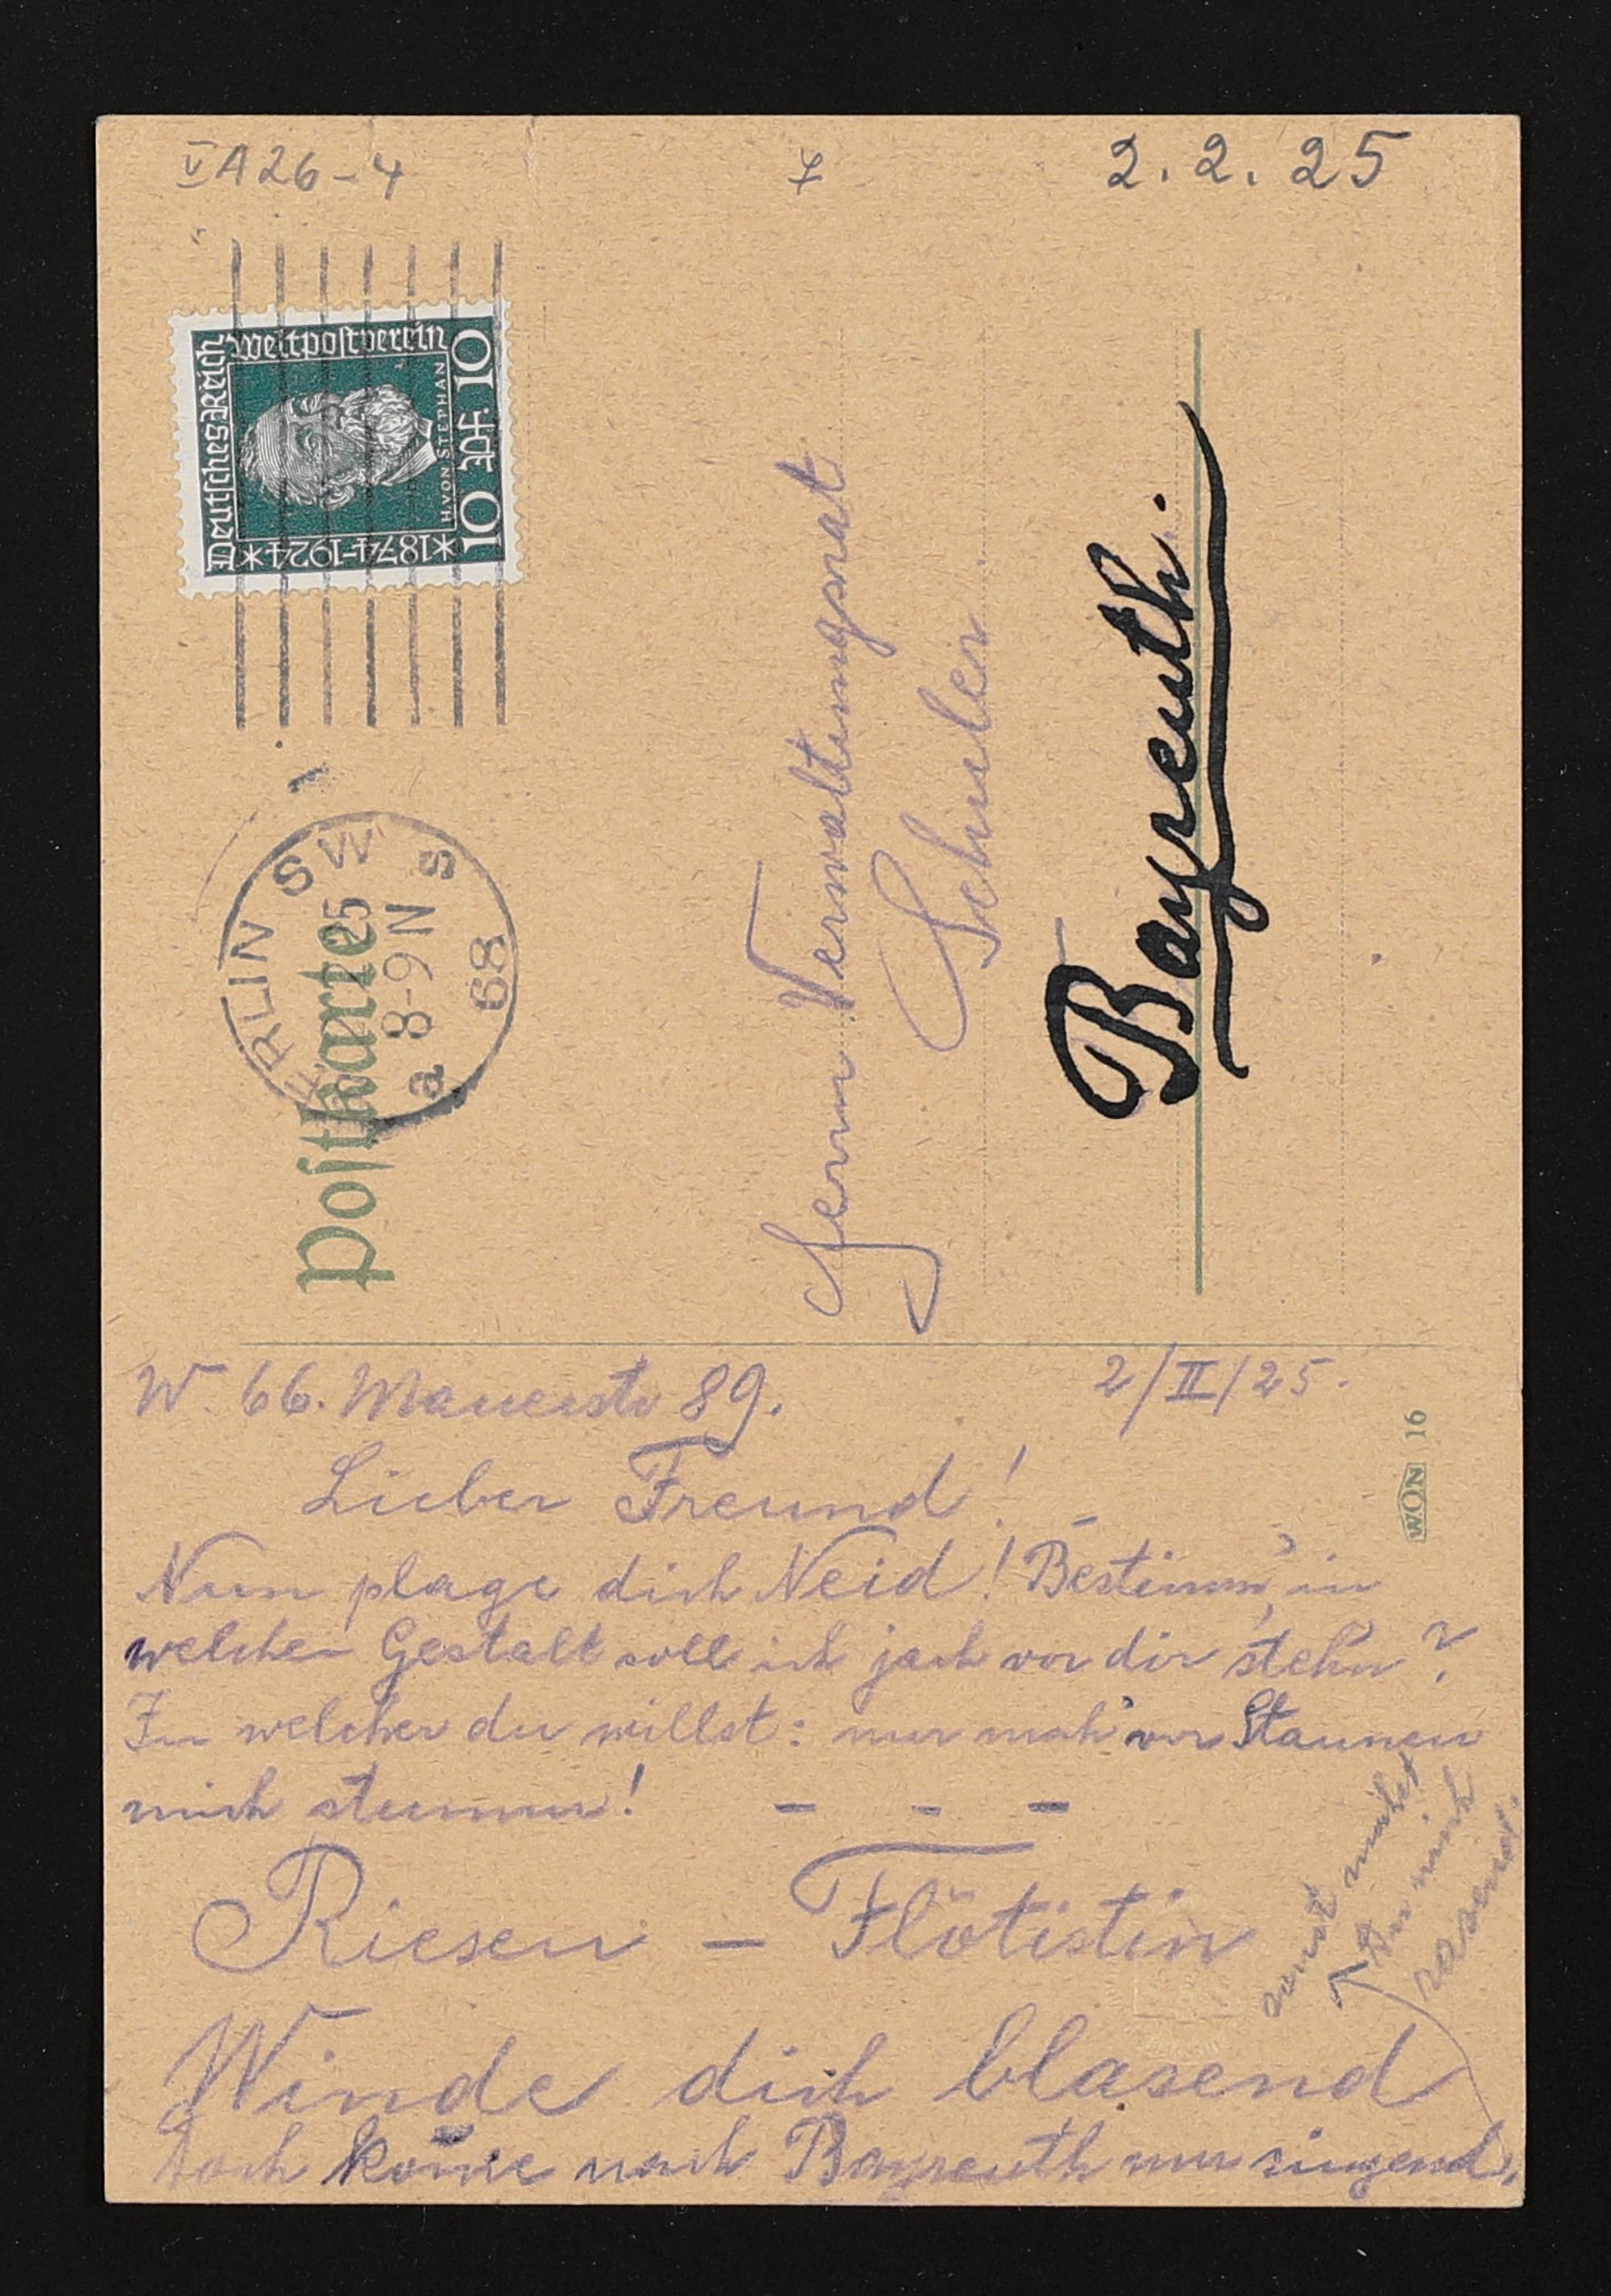 V A 26-4
7
2.2.25
Deutsches Reich
Weltpostverein
*1874-1924*
H. VON STEPHAN
10 Pf. 10
ERLIN SW
25
8-9 N
a
s
68
Postkarte
Herrn Verwaltungsrat
Schuler
Bayreuth.
W. 66. Mauerstr 89.
2/II/25.
WON 16
Lieber Freund!
Nun plage dich Neid! Bestimm', in
welcher Gestalt soll ich jach vor dir stehn?
In welcher du willst: nur mach' vor Staunen
mich stumm! - - -
Riesen - Flötistin
Winde dich blasend
Doch kom̄e nach Bayreuth nur singend,
sonst machst
Du mich
rasend.